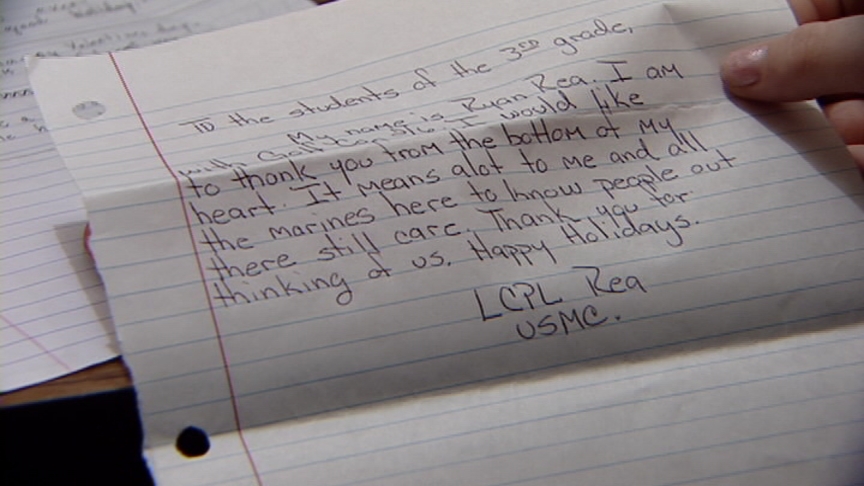 To the students of the 3RD grade,
My name is Ryan Rea. I am
with I would like
to thank you from the bottom of My
heart. It Means alot to me and all
the marines here to know people out
there still care. Thank you for
thinking of us. Happy Holidays.
LCPL Rea
USMC.